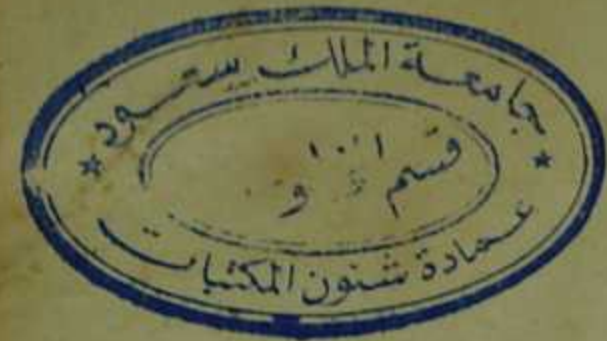 جامعة الملك سعود
قسم
عمادة شئون المكتبات